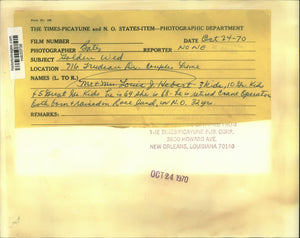 THE TIMES-PICAYUNE and N. O. STATES-ITEM—PHOTOGRAPHIC DEPARTMENT
FILM NUMBER DATE Oct 24-70
PHOTOGRAPHER REPORTER NONE
SUBJECT Golden Wed
LOCATION 716 Trudeau Dr. couples home
NAMES (L. TO R.)
Mr & Mrs. Louis J. Hebert - 3 kids, 10 Gr. Kids
+ 5 Great Gr. Kids he is 69 she is 68 - he is retired Crane Operator
both born in N.O.
REMARKS:
THE TIMES-PICAYUNE PUB. CORP.
3800 HOWARD AVE.
NEW ORLEANS, LOUISIANA 70140
OCT 24 1970